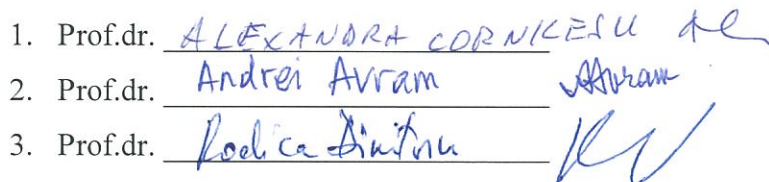 1. Prof.dr. ALEXANDRA CORNICESCU
2. Prof.dr. Andrei Avram AAvram
3. Prof.dr. Rodica Dimitriu